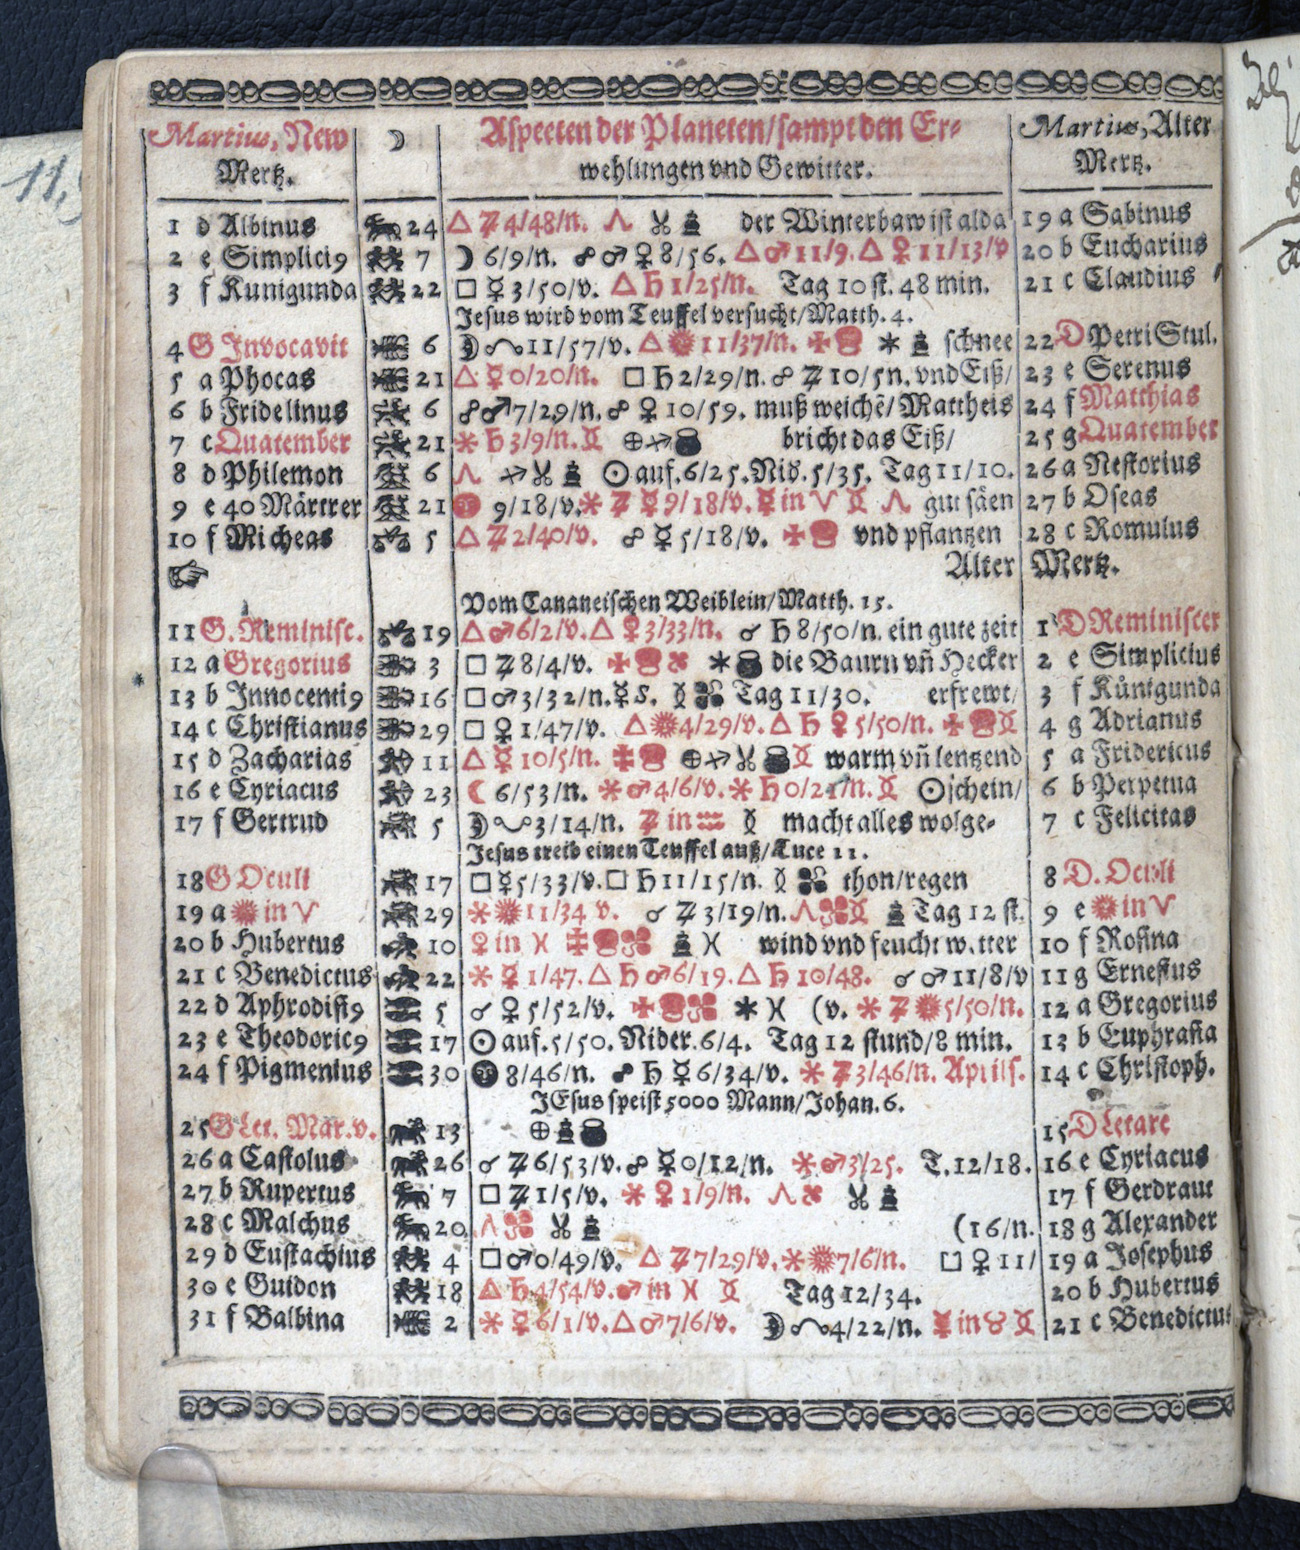 Martius, New ☽ Aspecten der Planeten/sampt den Er- Martius, Alter
Mertz. wehlungen vnd Gewitter. Mertz.
1 d Albinus 24 △ ♃ 4/48/n. der Winterbaw ist alda 19 a Sabinus
2 e Simplici9 7 ☽ 6/9/n. ☍ ♂ ♀ 8/56. △ ♂ 11/9. △ ♀ 11/13/v 20 b Eucharius
3 f Kunigunda 22 □ ☿ 3/50/v. △ ♄ 1/25/n. Tag 10 st. 48 min. 21 c Claudius
Jesus wird vom Teuffel versucht/Matth. 4.
4 G Invocavit 6 11/57/v. △ ☉ 11/37/n. schnee 22 D Petri Stul.
5 a Phocas 21 △ ☿ 0/20/n. □ ♄ 2/29/n. ☍ ♃ 10/5n. vnd Eiß/ 23 e Serenus
6 b Fridelinus 6 ☍ ♂ 7/29/n. ☍ ♀ 10/59. muß weichē/Mattheis 24 f Matthias
7 c Quatember 21 ✶ ♄ 3/9/n. bricht das Eiß/ 25 g Quatember
8 d Philemon 6 ☉ auf. 6/25. Nid. 5/35. Tag 11/10. 26 a Nestorius
9 e 40 Märtrer 21 9/18/v. ✶ ♃ ☿ 9/18/v. ☿ in ♈ gut säen 27 b Oseas
10 f Micheas 5 △ ♃ 2/40/v. ☍ ☿ 5/18/v. vnd pflantzen 28 c Romulus
☞ Alter Mertz.
Vom Cananeischen Weiblein/Matth. 15.
11 G. Reminisc. 19 △ ♂ 6/2/v. △ ♀ 3/33/n. ☌ ♄ 8/50/n. ein gute zeit 1 D Reminiscer
12 a Gregorius 3 □ ♃ 8/4/v. die Baurn vñ Hecker 2 e Simplicius
13 b Innocenti9 16 □ ♂ 3/32/n. ☿ S. Tag 11/30. erfrewt/ 3 f Künigunda
14 c Christianus 29 □ ♀ 1/47/v. △ ☉ 4/29/v. △ ♄ ♀ 5/50/n. 4 g Adrianus
15 d Zacharias 11 △ ☿ 10/5/n. warm vñ lentzend 5 a Fridericus
16 e Cyriacus 23 ☾ 6/53/n. ✶ ♂ 4/6/v. ✶ ♄ ☉ schein/ 6 b Perpetua
17 f Gertrud 5 3/14/n. ♃ in ♒ macht alles wolge- 7 c Felicitas
Jesus treib einen Teuffel auß/Luce 11.
18 G Oculi 17 □ ☿ 5/33/v. □ ♄ 11/15/n. thon/regen 8 D. Oculi
19 a ☉ in ♈ 29 ✶ ☉ 11/34 v. ☌ ♃ 3/19/n. Tag 12 st. 9 e ☉ in ♈
20 b Hubertus 10 ♀ in ♓ ♓ wind vnd feucht w.tter 10 f Rosina
21 c Benedictus 22 ✶ ☿ 1/47. △ ♄ ♂ 6/19. △ ♄ 10/48. ☌ ♂ 11/8/v 11 g Ernestus
22 d Aphrodisi9 5 ☌ ♀ 5/52/v. ♓ (v. ✶ ♃ ☉ 5/50/n. 12 a Gregorius
23 e Theodoric9 17 ☉ auf. 5/50. Nider. 6/4. Tag 12 stund/8 min. 13 b Euphrasia
24 f Pigmenius 30 8/46/n. ☍ ♄ ☿ 6/34/v. ✶ ♃ 3/46/n. Aprils. 14 c Christoph.
JEsus speist 5000 Mann/Johan. 6.
25 G Let. Mar. v. 13 15 D Letare
26 a Castolus 26 ☌ ♃ 6/53/v. ☍ ☿ 0/12/n. ✶ ♂ 3/25. T. 12/18. 16 e Cyriacus
27 b Rupertus 7 □ ♃ 1/5/v. ✶ ♀ 1/9/n. 17 f Gerdraut
28 c Malchus 20 (16/n. 18 g Alexander
29 d Eustachius 4 □ ♂ 0/49/v. △ ♃ 7/29/v. ✶ ☉ 7/6/n. □ ♀ 11/ 19 a Josephus
30 e Guidon 18 △ ♄ 4/54/v. ♂ in ♓ Tag 12/34. 20 b Hubertus
31 f Balbina 2 ✶ ☿ 6/1/v. △ ♂ 7/6/v. 4/22/n. ☿ in ♉ 21 c Benedictus